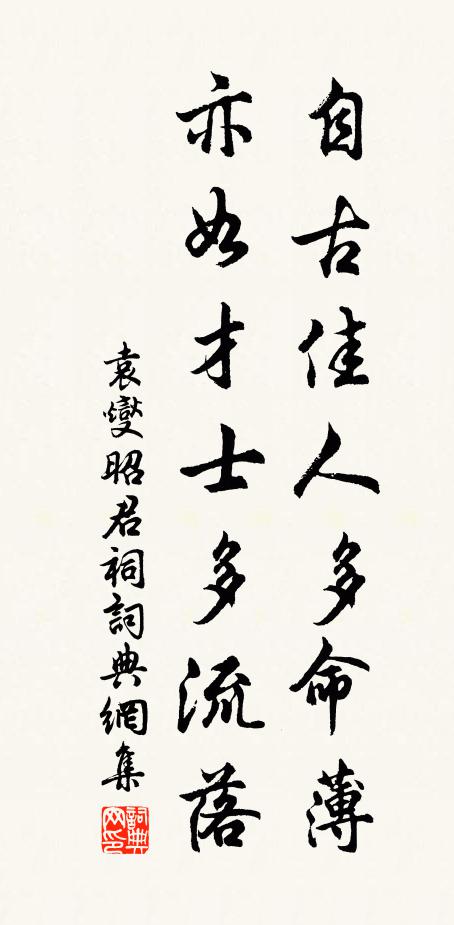 自古佳人多命薄
亦如才士多流落
袁燮昭君祠詞典網集
詞典网印